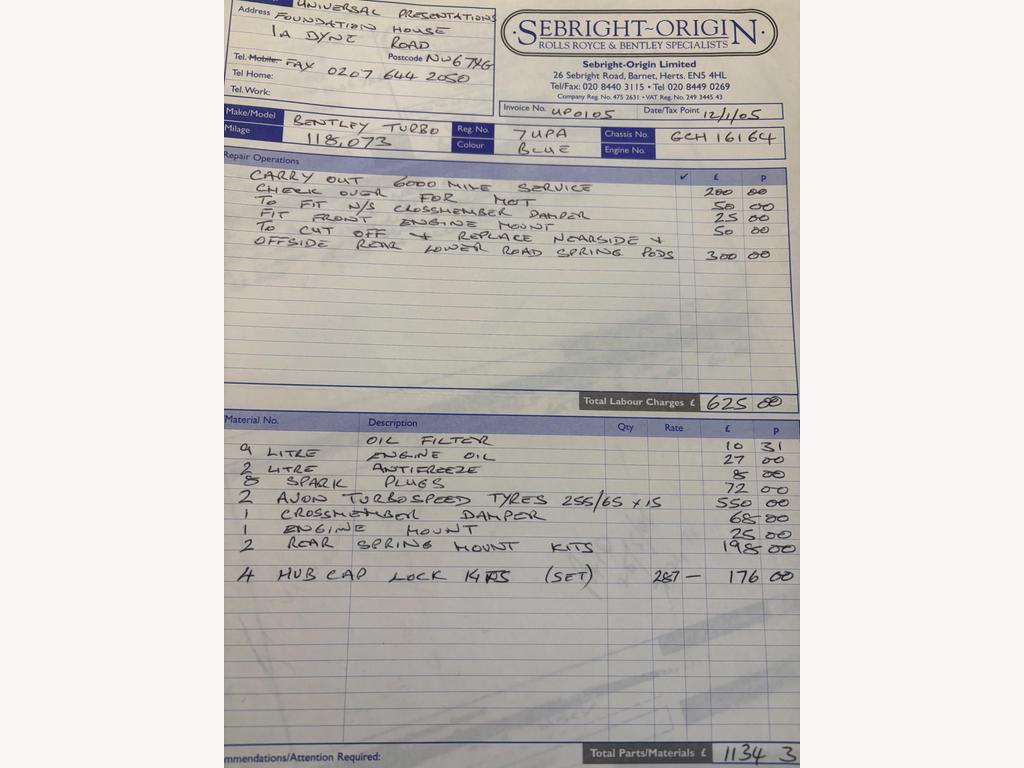 UNIVERSAL PRESENTATIONS
Address FOUNDATION HOUSE
1A DYNE ROAD
Postcode NW6 7XG
Tel. Mobile: FAX 0207 644 2050
Tel Home:
Tel. Work:
SEBRIGHT~ORIGIN
ROLLS ROYCE & BENTLEY SPECIALISTS
Sebright-Origin Limited
26 Sebright Road, Barnet, Herts. EN5 4HL
Tel/Fax: 020 8440 3115 • Tel 020 8449 0269
Company Reg. No. 475 2631 • VAT Reg. No. 249 3445 43
Invoice No. UP0105 Date/Tax Point 12/1/05
Make/Model BENTLEY TURBO Reg. No. 7UPA Chassis No. GCH 16164
Milage 118,073 Colour BLUE Engine No.
Repair Operations ✓ £ P
CARRY OUT 6000 MILE SERVICE 200 00
CHECK OVER FOR MOT 50 00
TO FIT N/S CROSSMEMBER DAMPER 25 00
FIT FRONT ENGINE MOUNT 50 00
TO CUT OFF + REPLACE NEARSIDE +
OFFSIDE REAR LOWER ROAD SPRING PODS 300 00
Total Labour Charges £ 625 00
Material No. Description Qty Rate £ P
OIL FILTER 10 31
9 LITRE ENGINE OIL 27 00
2 LITRE ANTIFREEZE 8 00
8 SPARK PLUGS 72 00
2 AVON TURBOSPEED TYRES 255/65 x 15 550 00
1 CROSSMEMBER DAMPER 68 00
1 ENGINE MOUNT 25 00
2 REAR SPRING MOUNT KITS 198 00
4 HUB CAP LOCK (SET) 287 — 176 00
mmendations/Attention Required:
Total Parts/Materials £ 1134 3